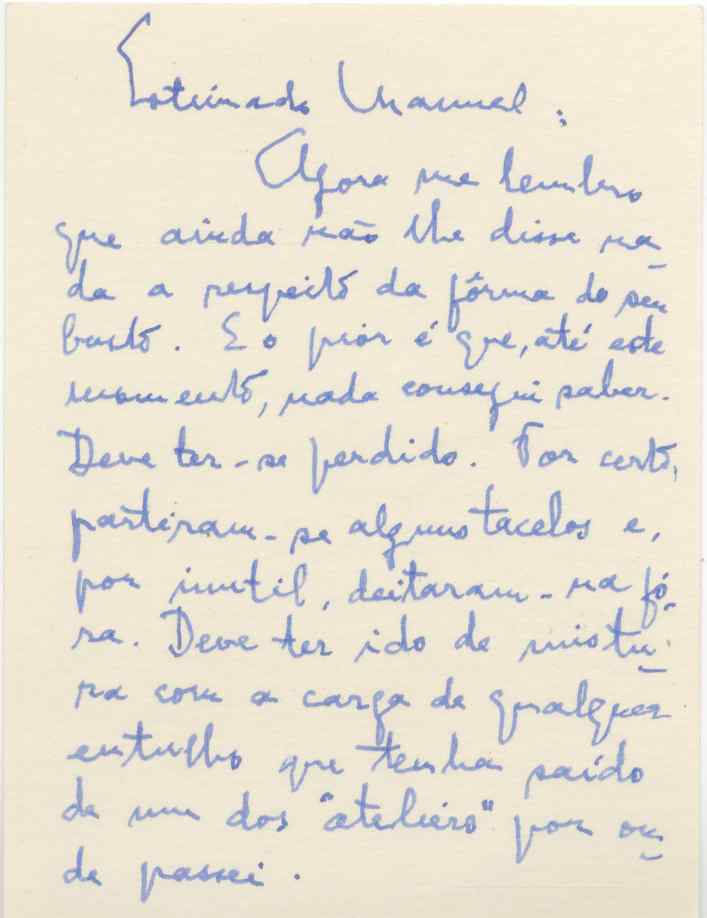 Estimado Manuel:
Agora me lembro
que ainda não lhe disse na-
da a respeito da fôrma do seu
busto. E o pior é que, até este
momento, nada consegui saber.
Deve ter-se perdido. Por certo,
partiram-se alguns tacelos e,
por inutil, deitaram-na fó-
ra. Deve ter ido de mistu-
ra com a carga de qualquer
entulho que tenha saído
de um dos "ateliers" por on-
de passei.